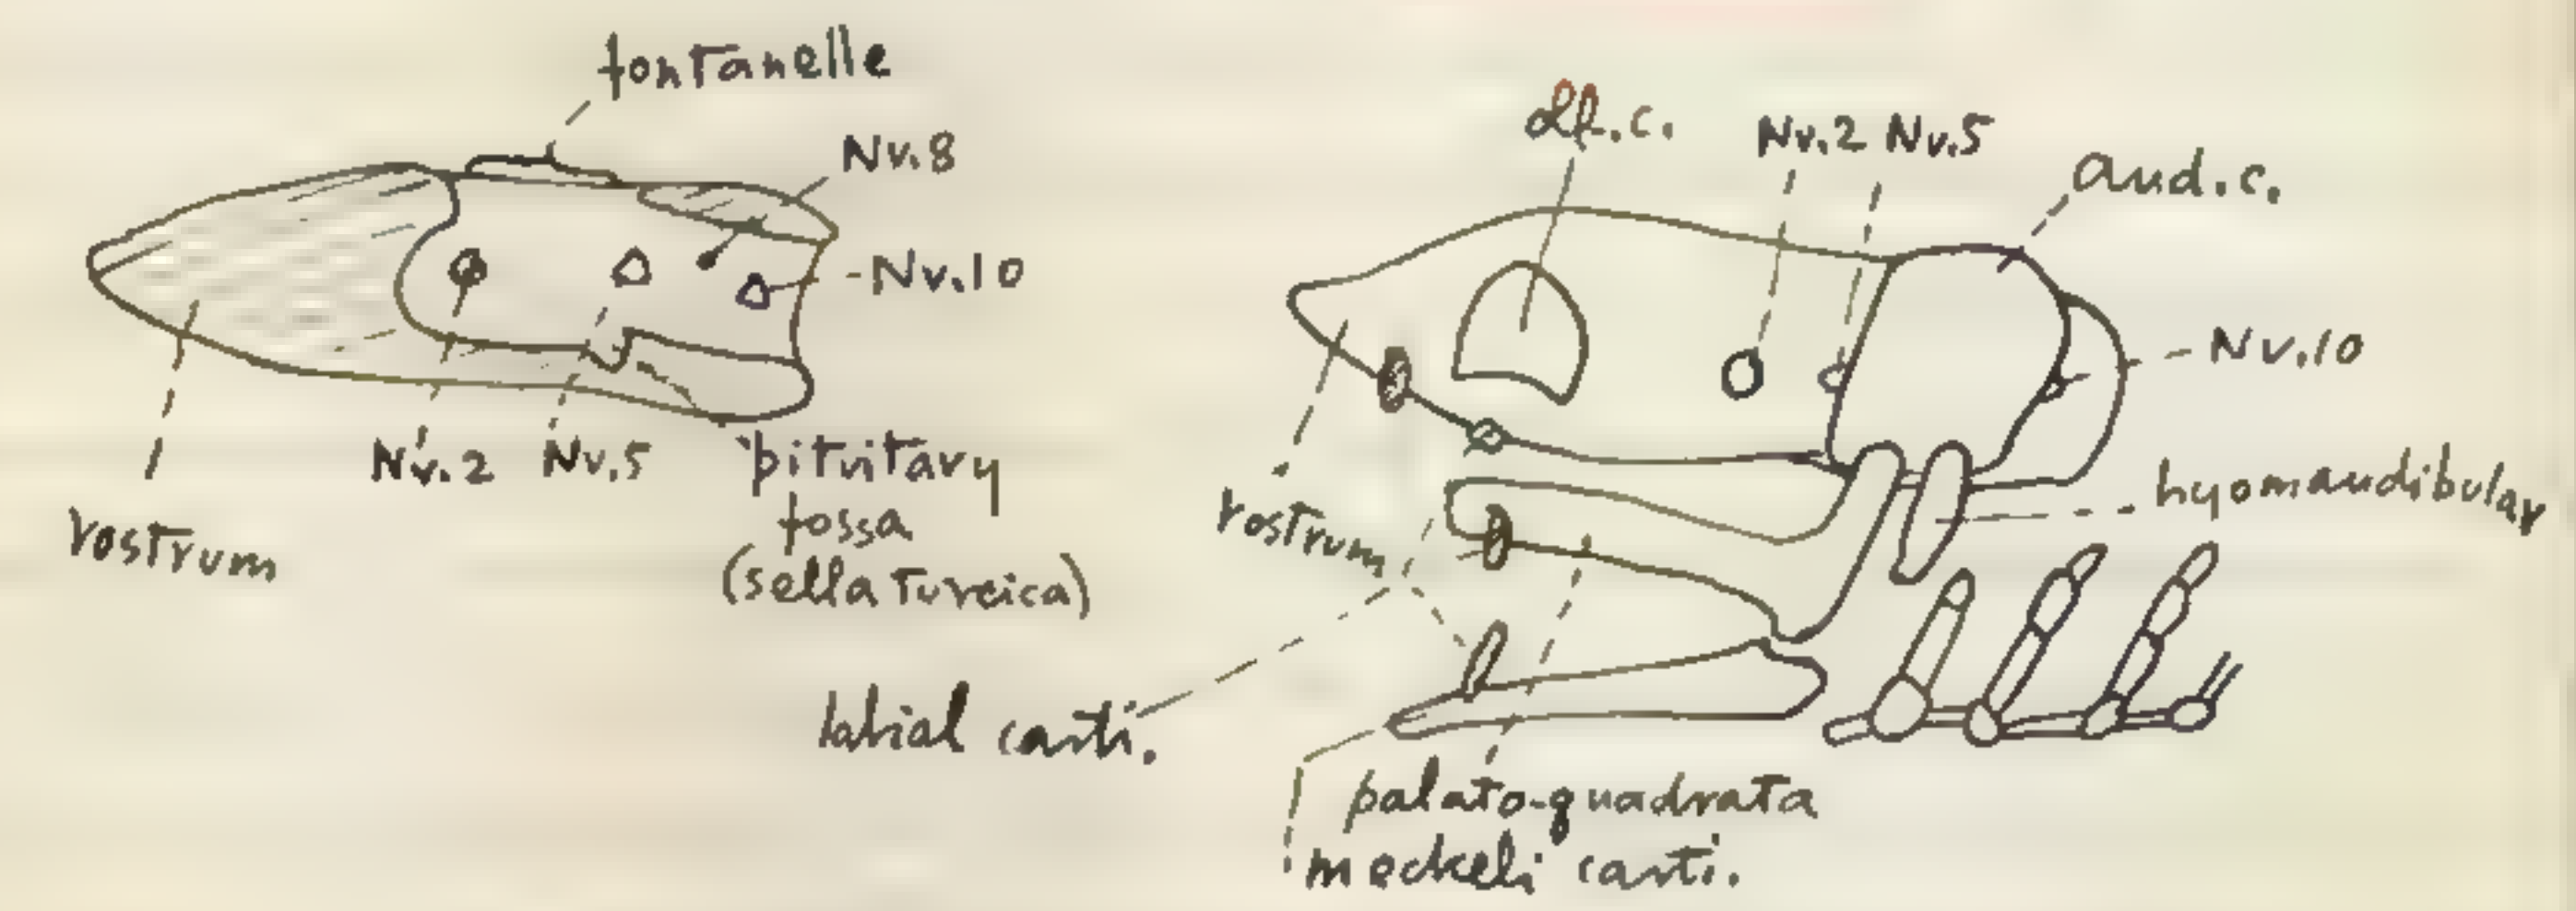 fontanelle
Nv.8
Nv.10
Nv.2
Nv.5
pituitary
fossa
(sella turcica)
rostrum
olf.c.
Nv.2
Nv.5
aud.c.
Nv.10
hyomandibular
rostrum
labial carti.
palato-quadrata
meckeli carti.